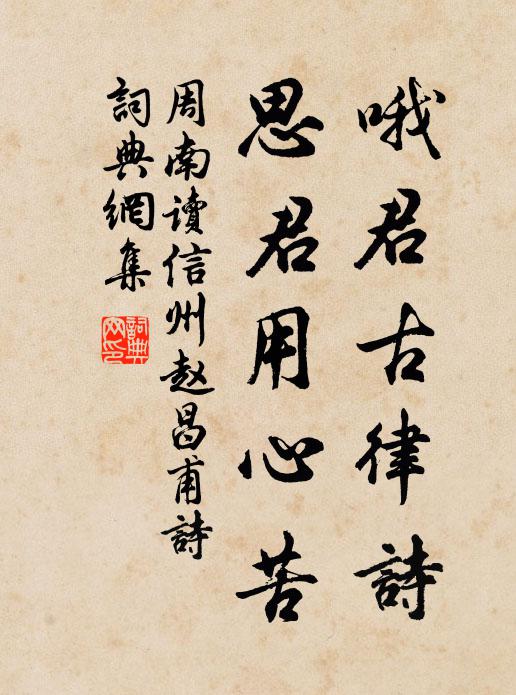 哦君古律詩
思君用心苦
周南讀信州赵昌甫詩
詞典網集
詞典網印